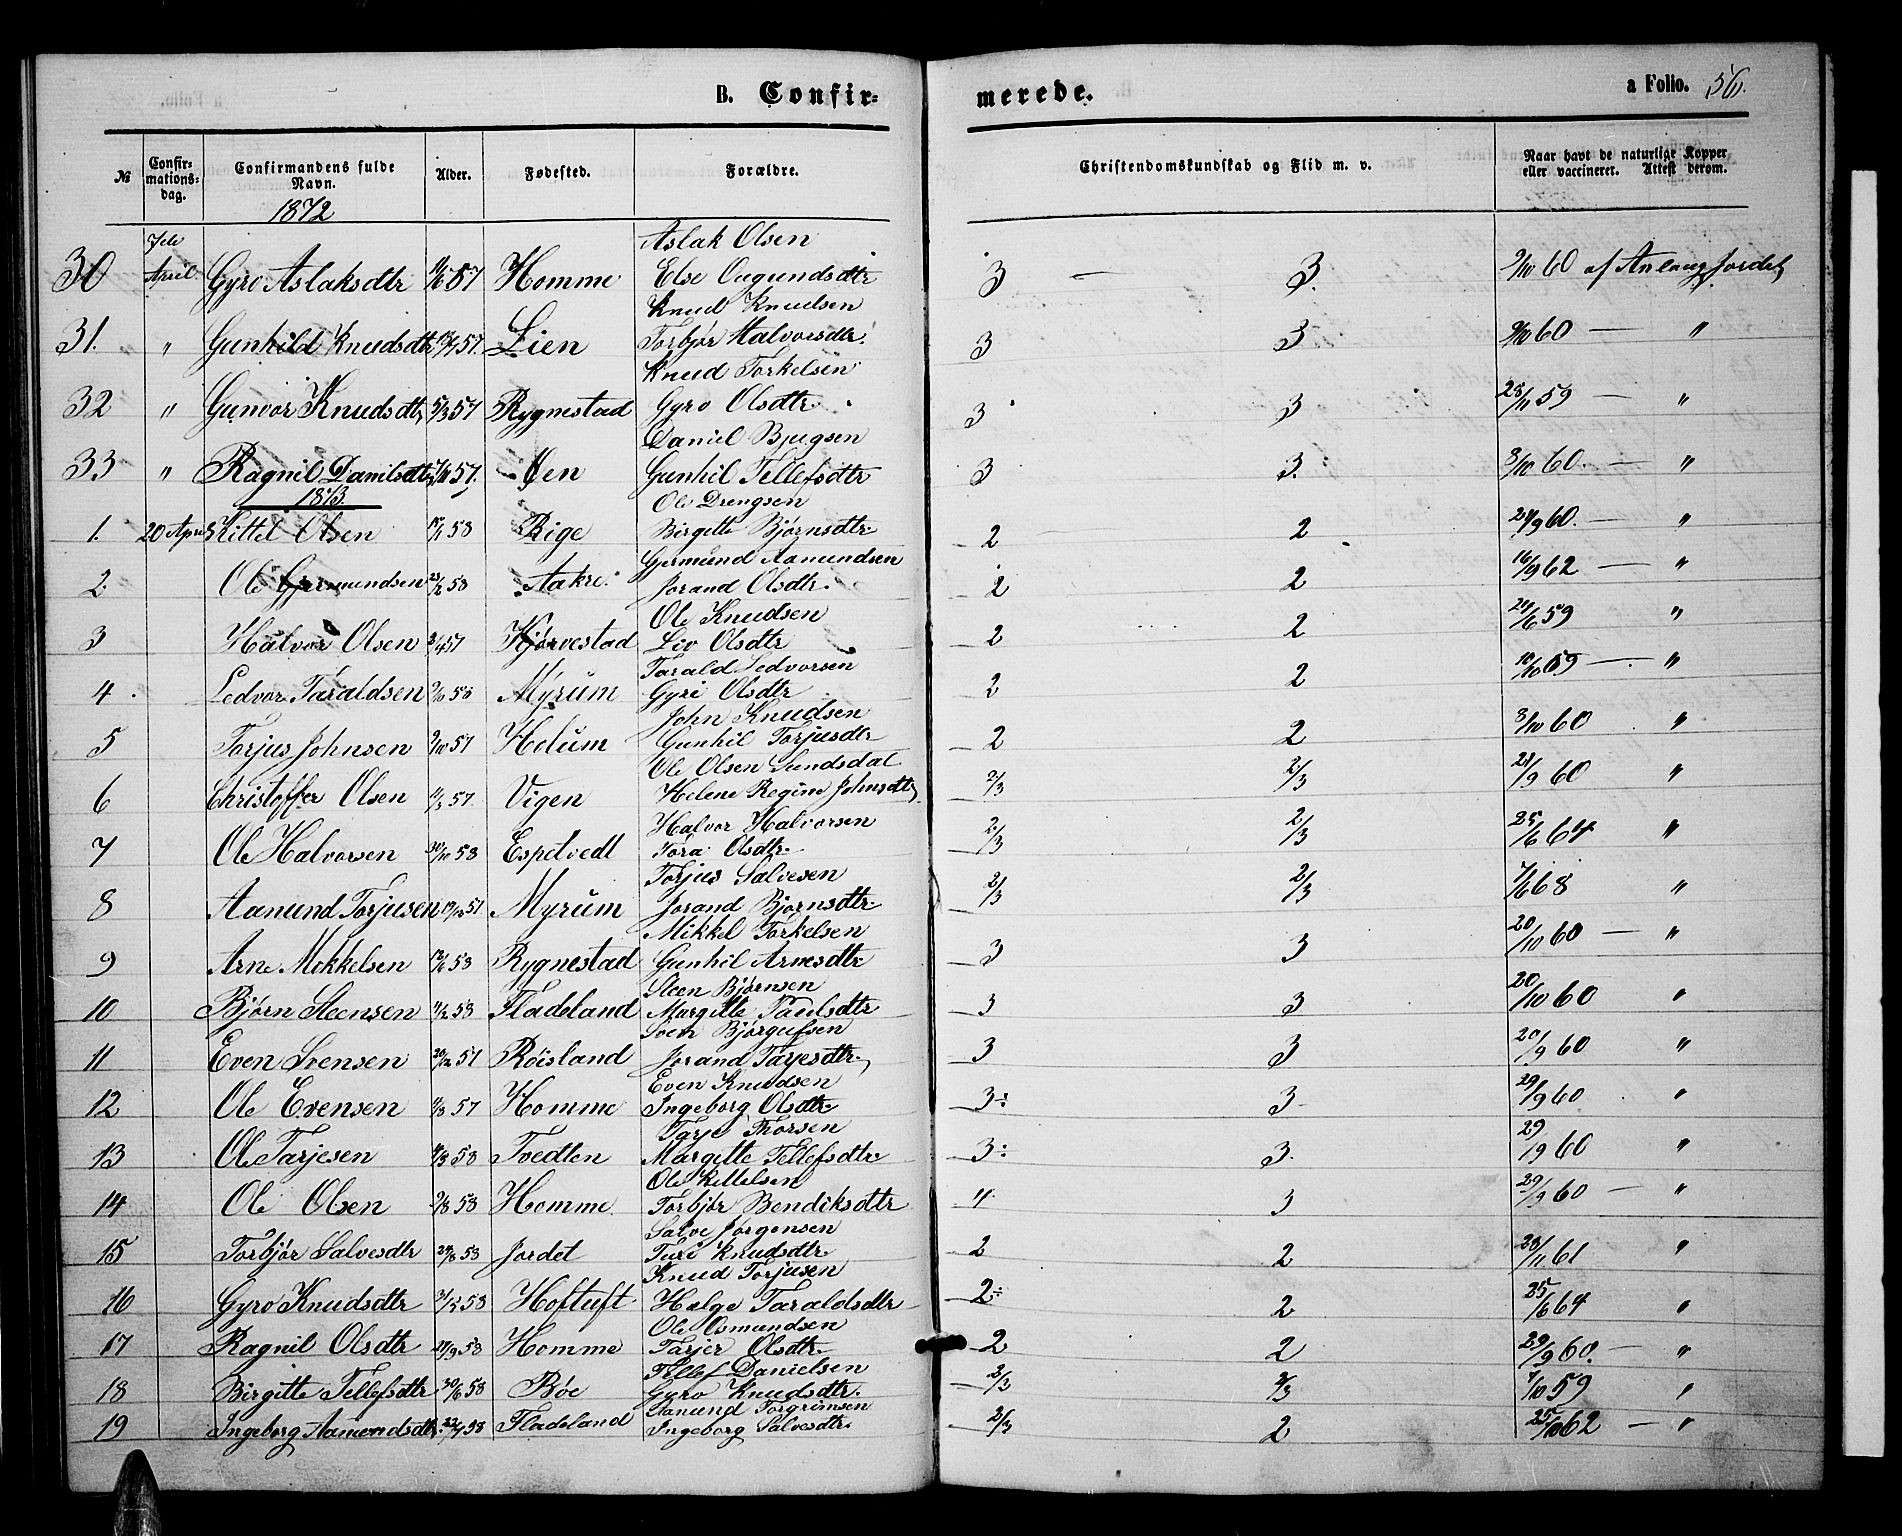 B. Confir-
merede.
a Folio. 56.
№ Confir-mations-dag. Confirmandens fulde Navn. Alder. Fødested. Forældre. Christendomskundskab og Flid m. v. Naar havt de naturlige Kopper eller vaccineret. Attest derom.
1872
Aslak Olsen
30 April Gyro Aslaksdtr 57 Homme Else Ougundsdtr 3 — 3. 9/10 60 af An. Langjordet
Knud Knudsen
31. " Gunhild Knudsdtr 57. Lien Torbjør Halvorsdtr. 3 3 9/10 60 — "
Knud Torkelsen
32 " Gunvor Knudsdtr 5/3 57 Rygnestad Gyro Olsdtr. 3 3 28/11 59 — "
Daniel Bjugsen
33 " Ragnil Danilsdtr 57. Øen Gunhil Tellefsdtr 3 3. 8/10 60. — "
1873.
Ole Drengsen
1. 20 April Kittel Olsen 58 Rige Birgitte Bjørnsdtr. 2 2 60. — "
Gjermund Aamundsen
2. Ole Gjermundsen 58 Aakre. Jorand Olsdtr. 2 2 16/9 62 — "
Ole Knudsen
3 Halvor Olsen 2/4 57 Kjørvestad Liv Olsdtr 2 2 59 "
Tarald Ledvorsen
4. Ledvor Taraldsen 58 Myrum Gyri Olsdtr 2 2 10/10 59 — "
John Knudsen
5 Torjus Johnsen 9/10 57 Helum Gunhil Torjusdtr 2 2 8/10 60 "
Ole Olsen Sundsdal
6 Christoffer Olsen 57. Vigen Helene Regine Johnsdtr 2/3 2/3 60 "
Halvor Halvorsen
7 Ole Halvorsen 30/10 58 Espetvedt Tora Olsdtr. 2/3 2/3 25/6 64 "
Torjus Salvesen
8 Aanund Torjusen 57 Myrum Jorand Bjørnsdtr. 2/3 2/3 7/6 68 "
Mikkel Torkelsen
9 Arne Mikkelsen 58 Rygnestad Gunhil Arnesdtr. 3 3 20/10 60 — "
Steen Bjørnsen
10 Bjørn Steensen 11/2 58 Fladeland Margitte Paulsdtr 3 3 20/10 60 "
Sven Bjørgufsen
11 Even Svensen 57 Røisland Jorand Tarjesdtr. 3 3 20/9 60 "
Even Knudsen
12 Ole Evensen 57 Homme Ingeborg Olsdtr. 3: 3 29/9 60 "
Tarje Thorsen
13 Ole Tarjesen 58 Tvedten Margitte Tellefsdtr. 3: 3. 29/9 60 "
Ole Kittelsen
14 Ole Olsen 58 Homme Torbjør Bendiksdtr 4 3 29/9 60 — "
Salve Jørgensen
15 Torbjør Salvesdtr 58 Jordet Turi Knudsdtr. 2 2 28/11 61 "
Knud Torjusen
16 Gyro Knudsdtr 58 Hoftuft Helge Taraldsdtr 2: 2 25/6 64 "
Ole Osmundsen
17 Ragnil Olsdtr 58 Homme Tarjer Olsdtr. 2 2 29/9 60. — "
Tellef Danielsen
18 Birgitte Tellefsdtr 30/6 58 Bøe Gyro Knudsdtr. 2/3 2/3 7/10 59 "
Aanund Torgrimsen
19 Ingeborg Aamundsdtr. 58 Fladeland Ingeborg Salvesdtr. 2/3 2 25/10 62 — "